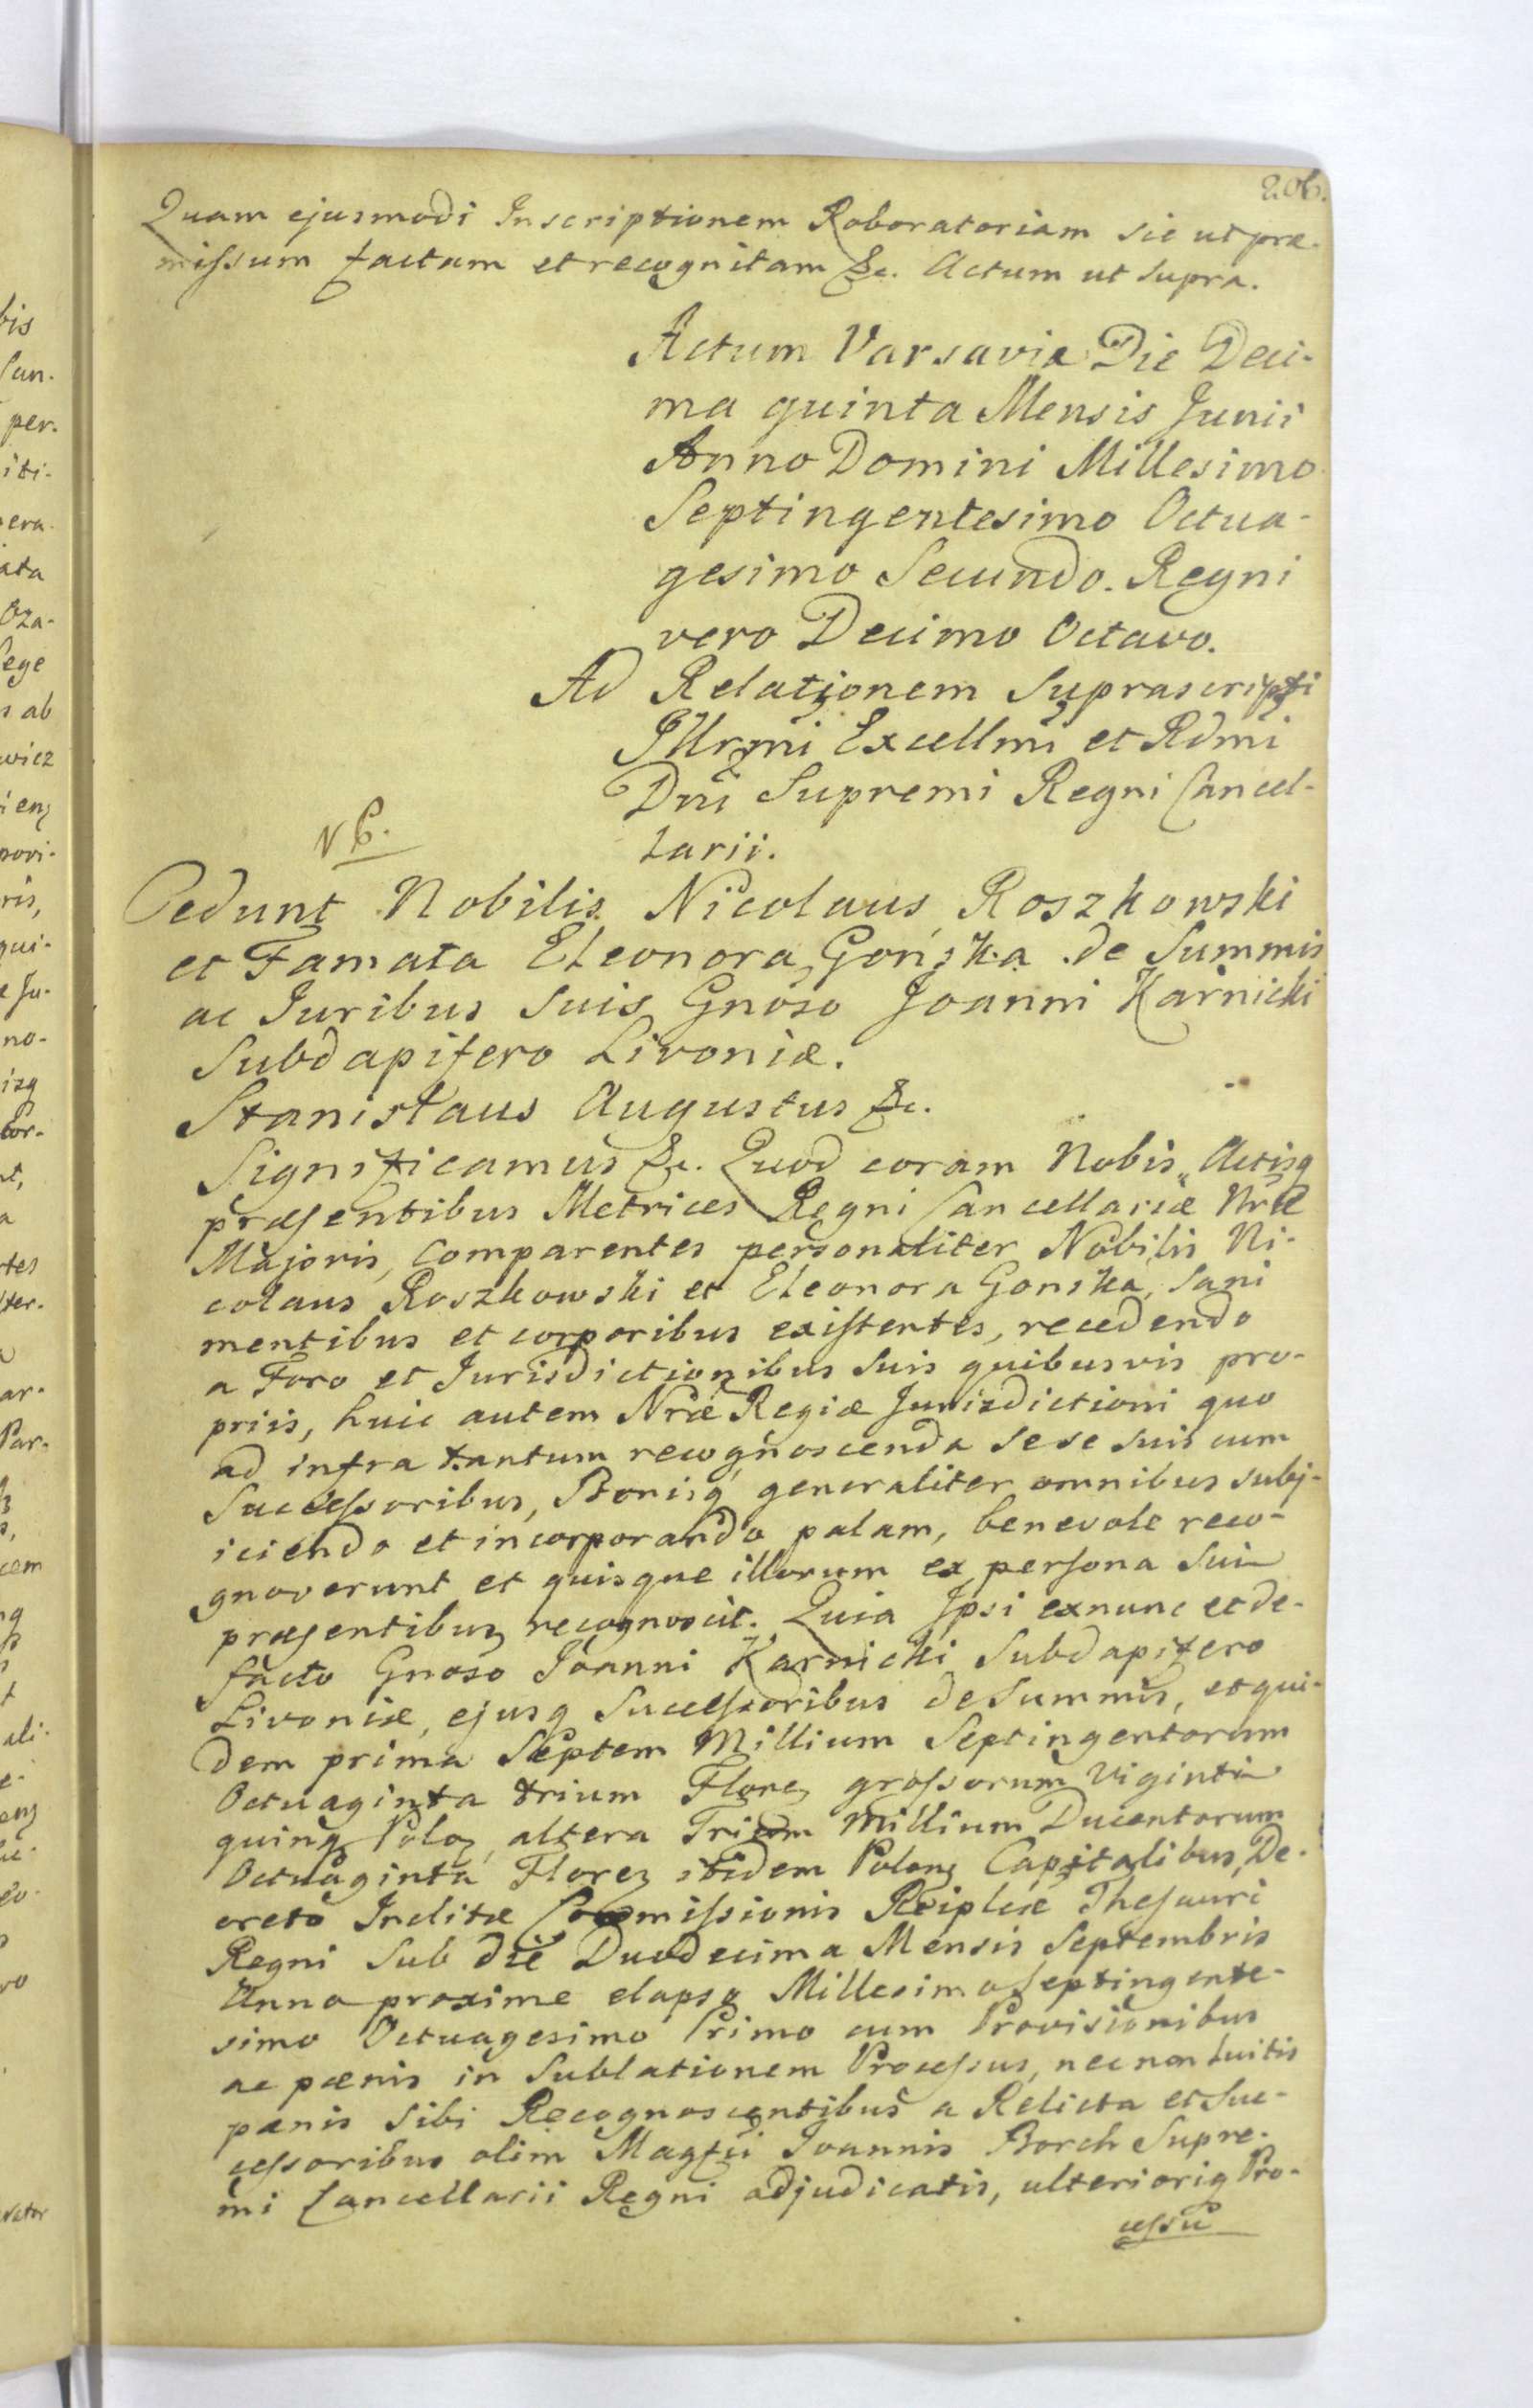 206.
Quam ejusmodi Inscriptionem Roboratoriam sic ut præ-
missum factam et recognitam &c. Actum ut supra.
Actum Varsaviæ Die Deci-
ma quinta Mensis Junii
Anno Domini Millesimo
Septingentesimo Octua-
gesimo Secundo. Regni
vero Decimo Octavo.
Ad Relationem Suprascripti
Illrmi Excellmi et Rdmi
Dni Supremi Regni Cancel-
larii.
Cedunt Nobilis Nicolaus Roszkowski
et Famata Eleonora Gońska de Summis
ac Juribus suis Gnoso Joanni Karnicki
Subdapifero Livoniæ.
Stanislaus Augustus &c.
Significamus &c. Quod coram Nobis, Actisq
præsentibus Metrices Regni Cancellariæ Nræ
Majoris, Comparentes personaliter Nobilis Ni-
colaus Roszkowski et Eleonora Gonska, sani
mentibus et corporibus existentes, recedendo
a Foro et Jurisdictionibus suis quibusvis pro-
priis, huic autem Nræ Regiæ Jurisdictioni quo
ad infra tantum recognoscenda sese suis cum
Successoribus, Bonisq generaliter omnibus subj-
iciendo et incorporando palam, benevole reco-
gnoverunt et quisque illorum ex persona sui
præsentibus recognoscit. Quia Ipsi exnunc et de-
facto Gnoso Joanni Karnicki Subdapifero
Livoniæ, ejusq Successoribus de Summis, et qui-
dem prima Septem Millium Septingentorum
Octuaginta trium Floren grossorum Viginti
quinq Polon, altera Trium Millium Ducentorum
Octuaginta Floren itidem Polon Capitalibus, De-
creto Inclitæ Commissionis Reiplcæ Thesauri
Regni sub die Duodecima Mensis Septembris
Anno proxime elapso Millesimo Septingente-
simo Octuagesimo Primo cum Provisionibus
ac pænis in Sublationem Processus, nec non luitis
pænis sibi Recognoscentibus a Relicta et Suc-
cessoribus olim Magfci Joannis Borch Supre-
mi Cancellarii Regni adjudicatis, ulterioriq Pro-
cessu